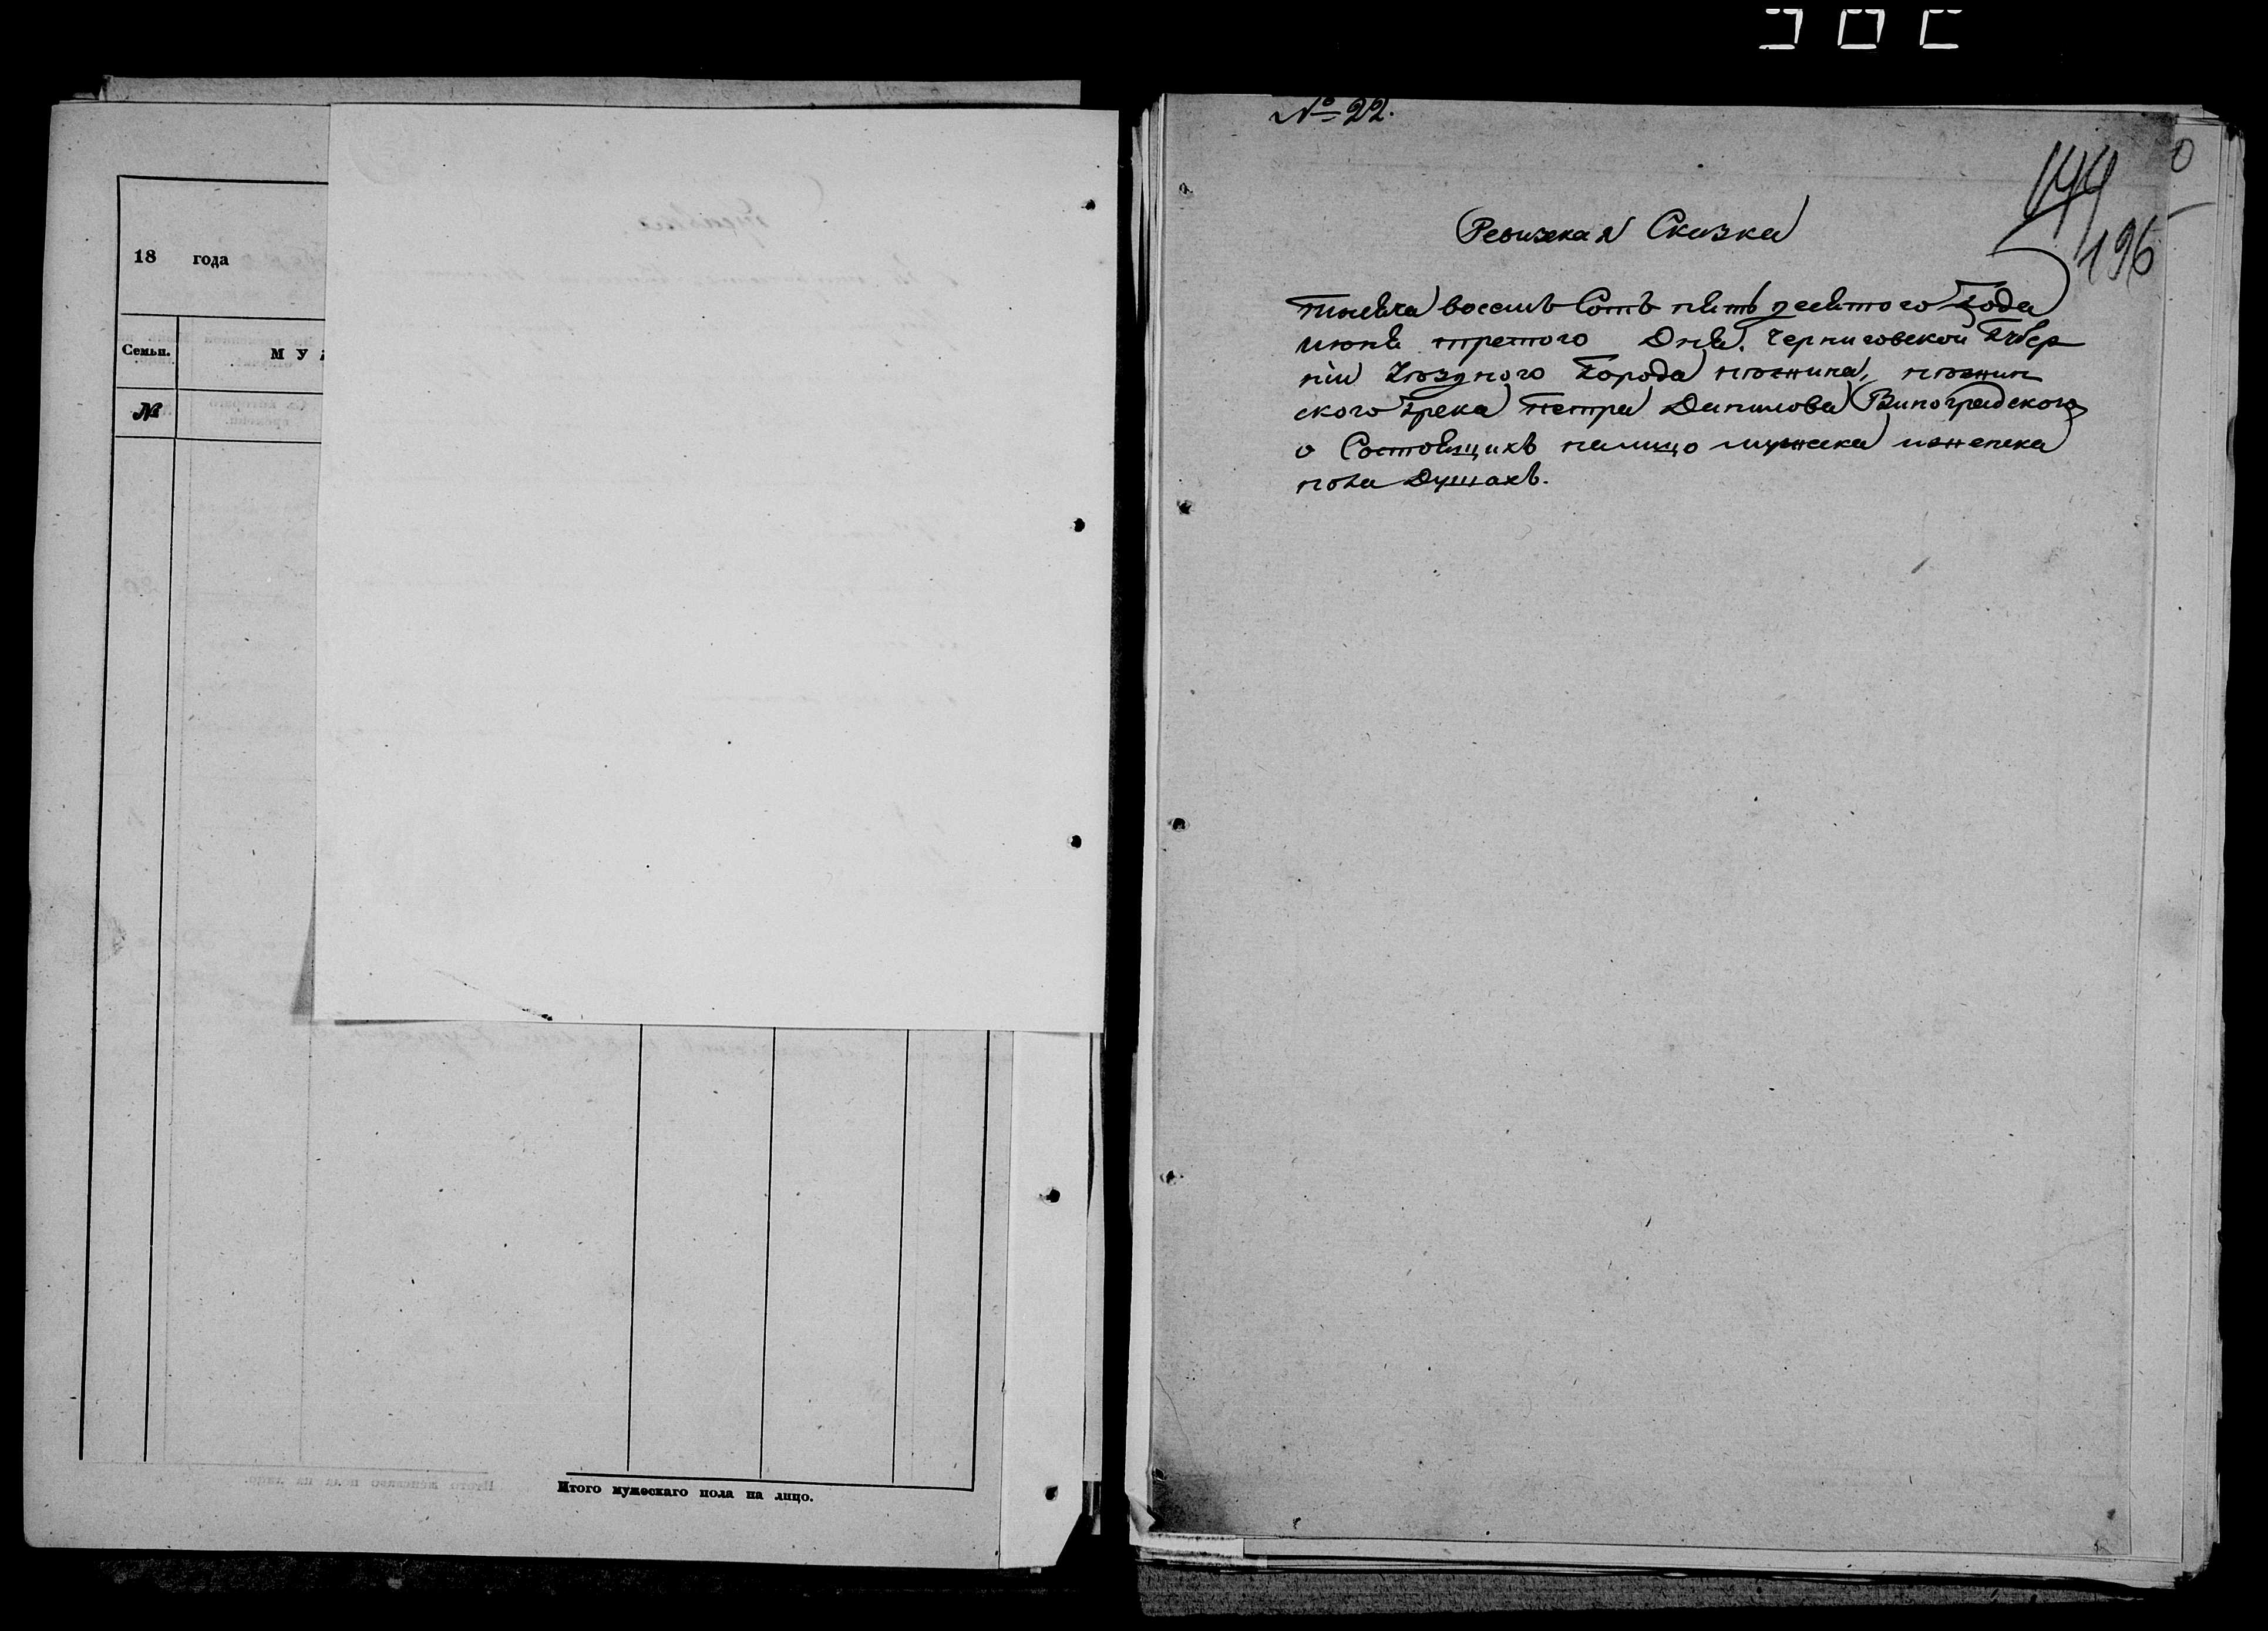 18 года
Семьи.
М У
№
Итого мужескаго пола на лицо.
№ 22.
144
196
Ревизская Сказка
тысяча восемь Сотъ пятьдесятого Года
июня третого Дня. Черниговской Губер
нiи Уѣзднаго Города нѣжина, нѣжин
ского Грека Петра Данилова Виноградского
о Состоящихъ налицо мужска иженска
пола Душахъ.